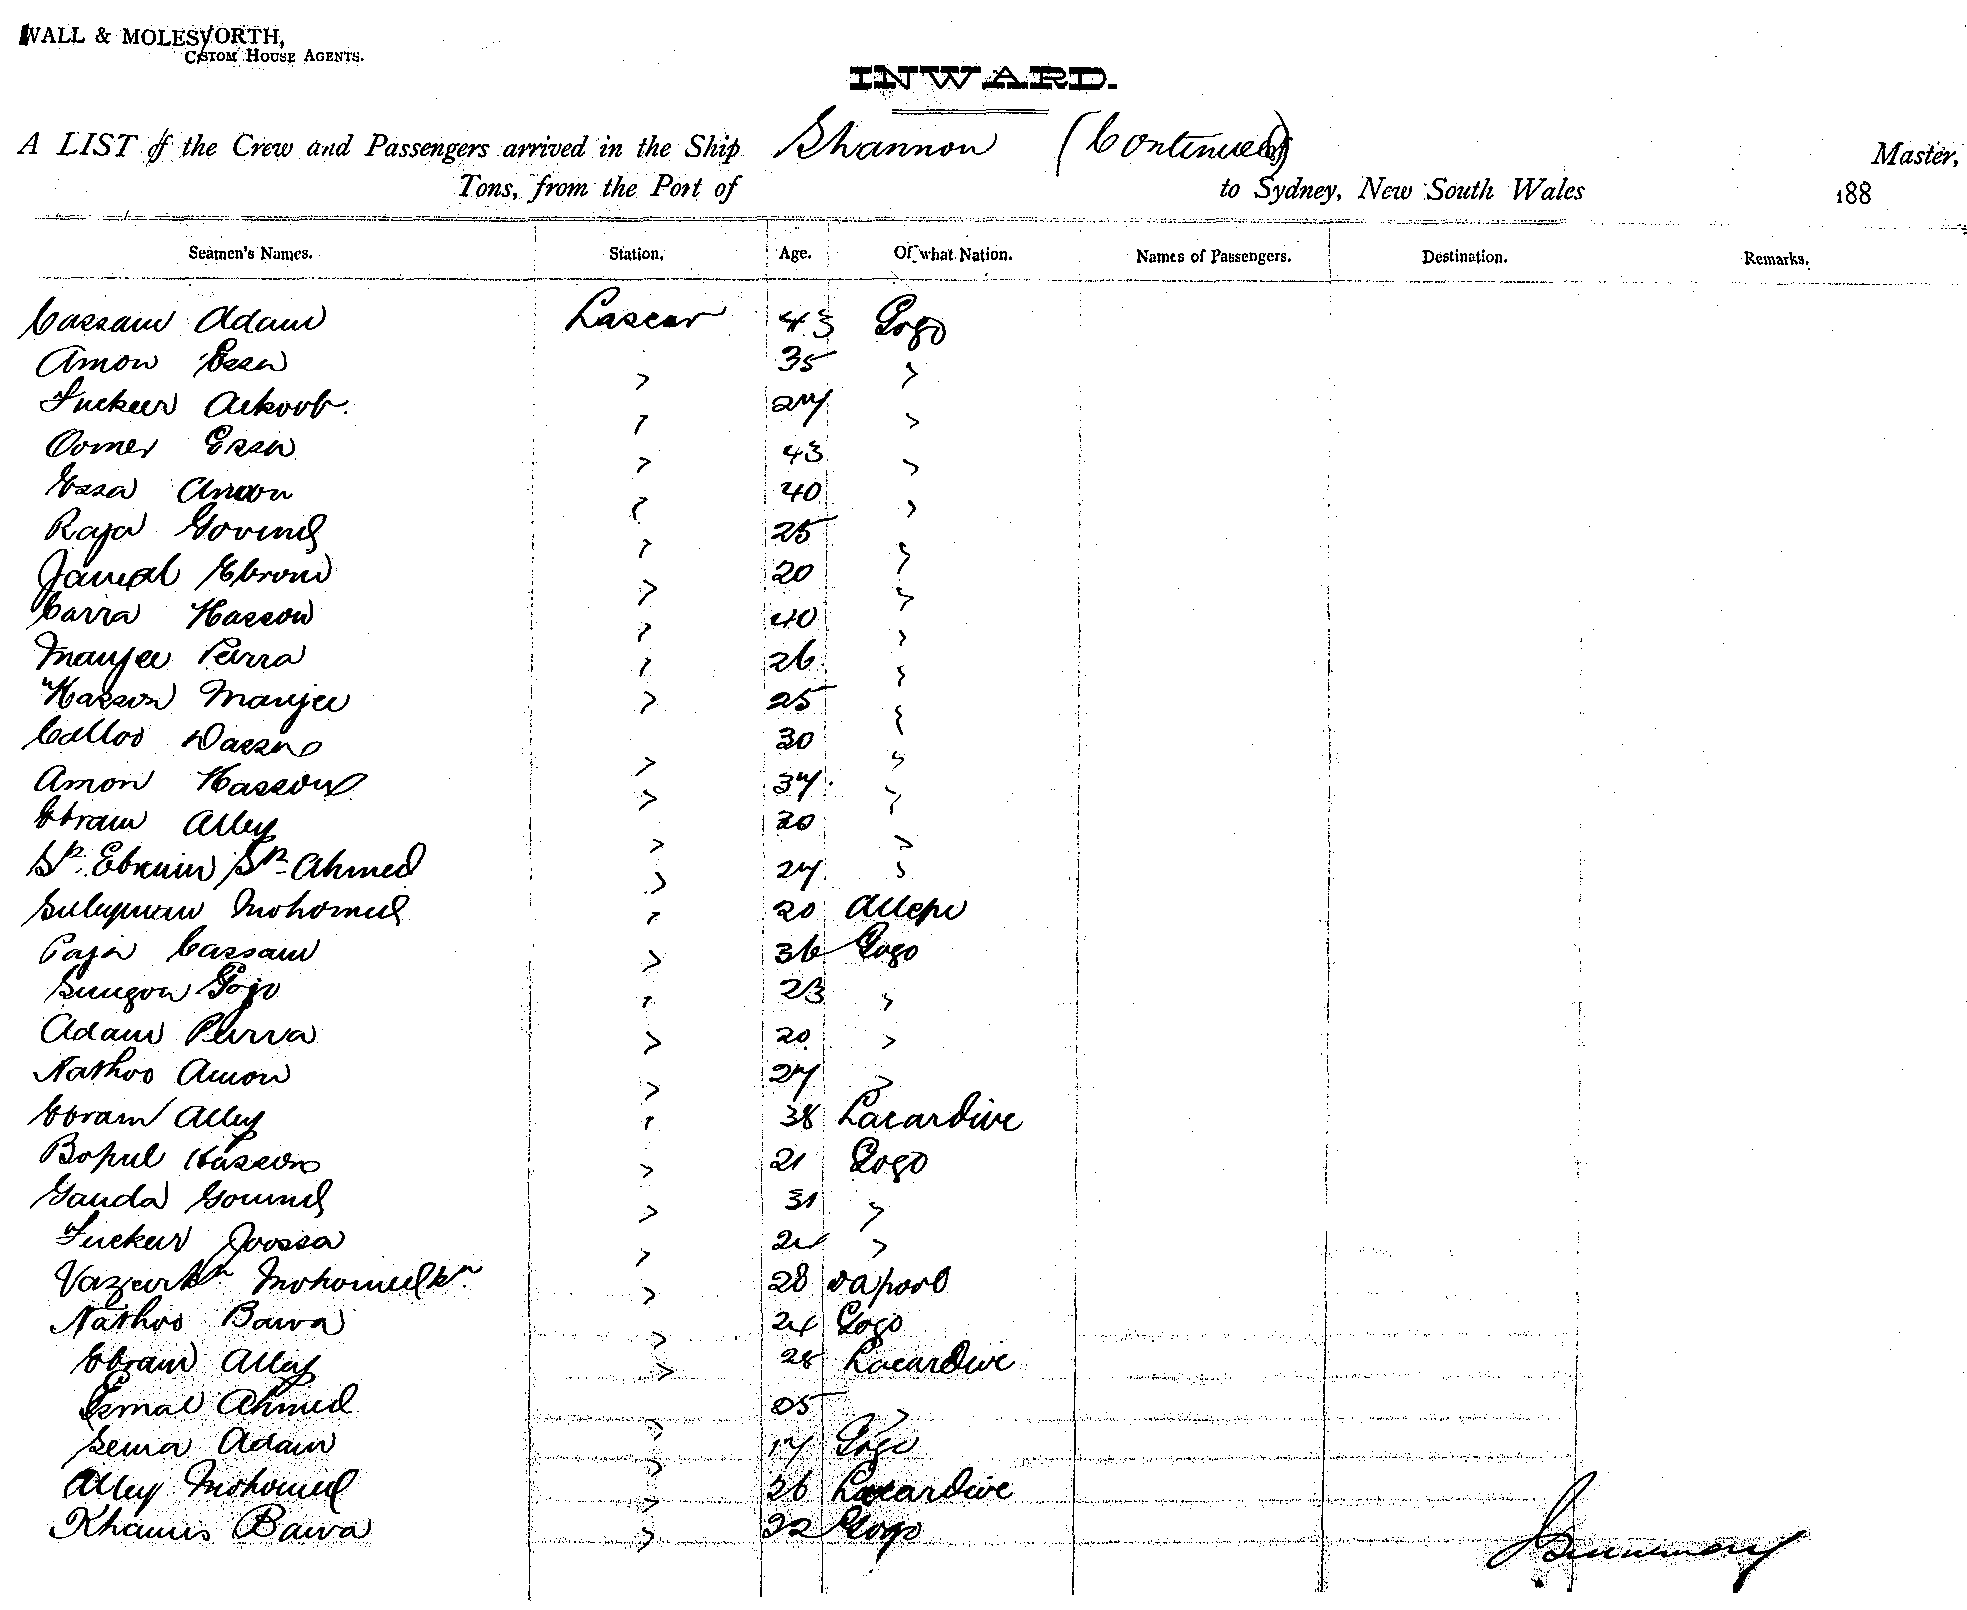 WALL & MOLESWORTH,
CUSTOM HOUSE AGENTS.
INWARD.
A LIST of the Crew and Passengers arrived in the Ship Shannon (Continued) Master,
Tons, from the Port of to Sydney, New South Wales 188
Seamen's Names. Station. Age. Of what Nation. Names of Passengers. Destination. Remarks.
Cassam Adam Lascar 43 Gogo
Amon Essa " 35 "
Fuckeer Ackoob " 27 "
Oomer Essa " 43 "
Essa Amon " 40 "
Raja Govind " 25 "
Jamal Ebram " 20 "
Carra Hasson " 40 "
Manjee Peera " 26 "
Hasson Manjee " 25 "
Calloo " 30 "
Amon Hasson " 37 "
Ebram Alley " 30 "
Sk. Ebram Sk. Ahmed " 27 "
Suleyman Mohomed " 20 Allepi
Paja Cassam " 36 Gogo
Gogo " 23 "
Adam Peerra " 20 "
Nathoo Amon " 27 "
Ebram Alley " 38 Lacardive
Bopul Hasson " 21 Gogo
Ganda Govind " 31 "
Fuckeer Joossa " "
Mohomedkn " 28
Nathoo Bawa " 24 Gogo
Ebram Alley " 28 Lacardive
Esmal Ahmed " "
Adam " 17 Gogo
Alley Mohomed " 26 Lacardive
Khamis Bawa " 22 Gogo